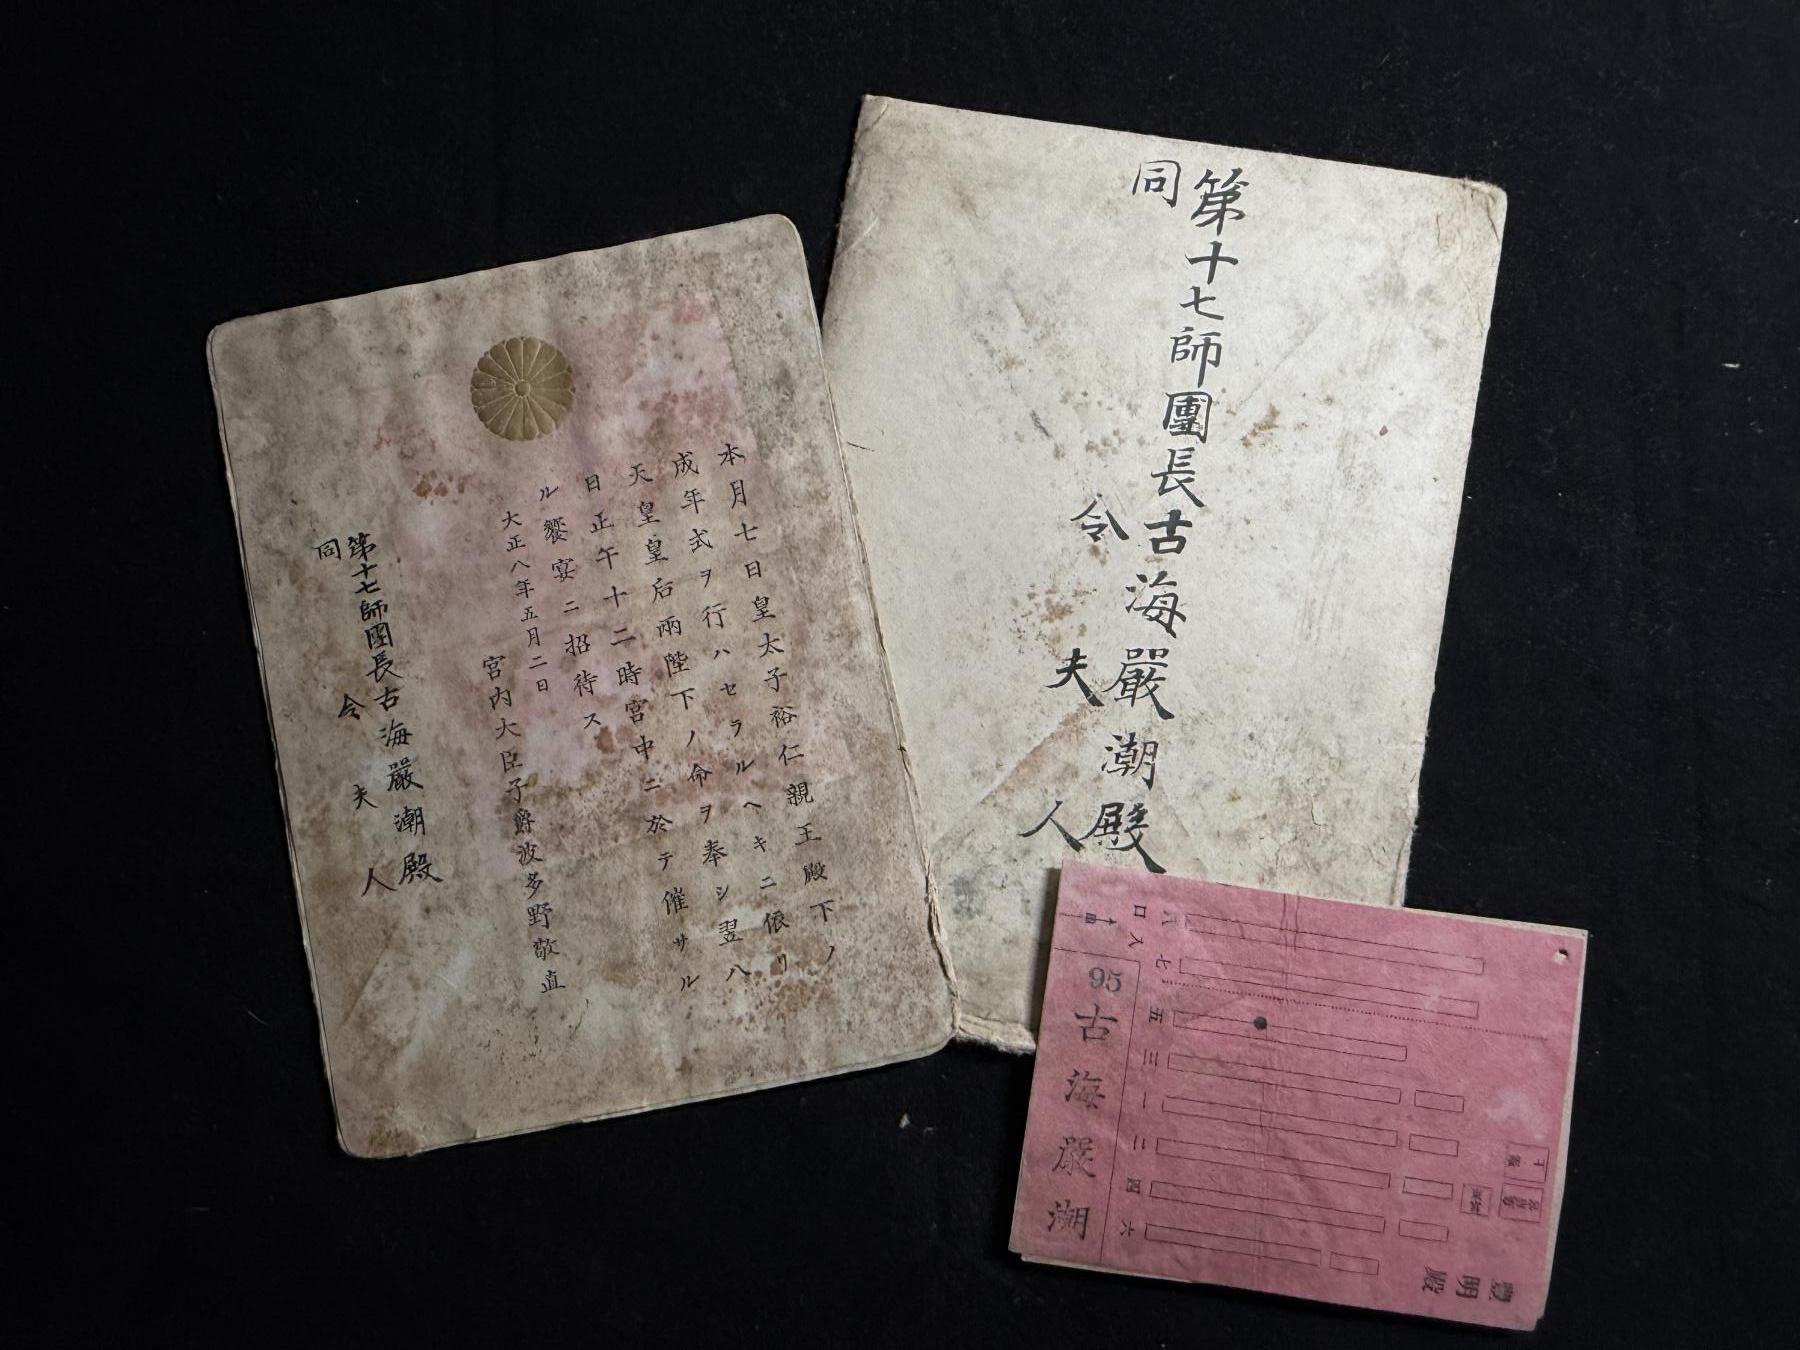 本月七日皇太子裕仁親王殿下ノ
成年式ヲ行ハセラルヘキニ依リ
天皇皇后兩陛下ノ命ヲ奉シ翌八
日正午十二時宮中ニ於テ催サル
ル饗宴ニ招待ス
大正八年五月二日
宮内大臣子爵波多野敬直
第十七師團長古海嚴潮殿
同令夫人
第十七師團長古海嚴潮殿
同令夫人
95
古海嚴潮
入口
八
七
五
三
一
二
四
六
豐明殿